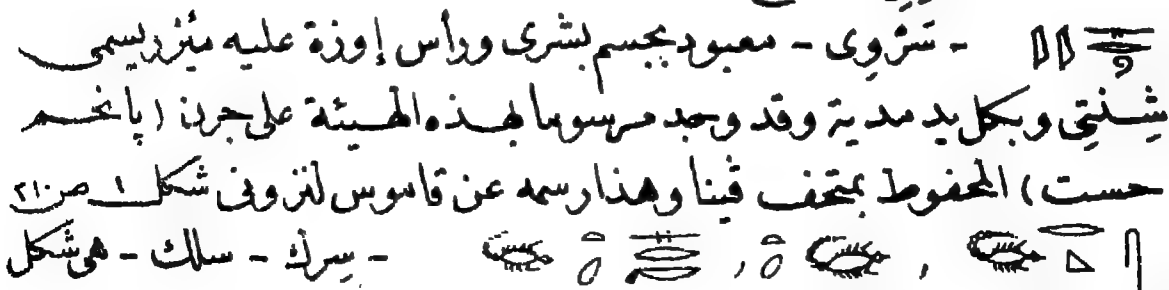 - سَرْوِى - معبود بجسم بشرى ورأس إوزة عليه مئزر يسمى
شِنْتِى وبكل يد مدية وقد وجد مرسوما بهذه الهيئة على جرن (پانحم
حست) المحفوظ بمتحف ڤينا وهذا رسمه عن قاموس لنزونى شكل ١ ص ٢١٠
- سِرك - سلك - هى شكل